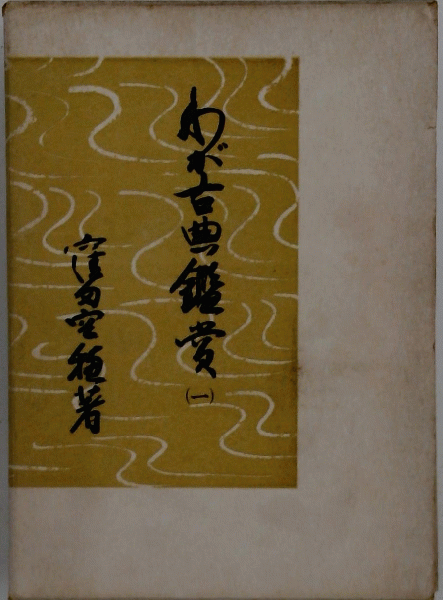 わが古典鑑賞
(一)
窪田空穂著